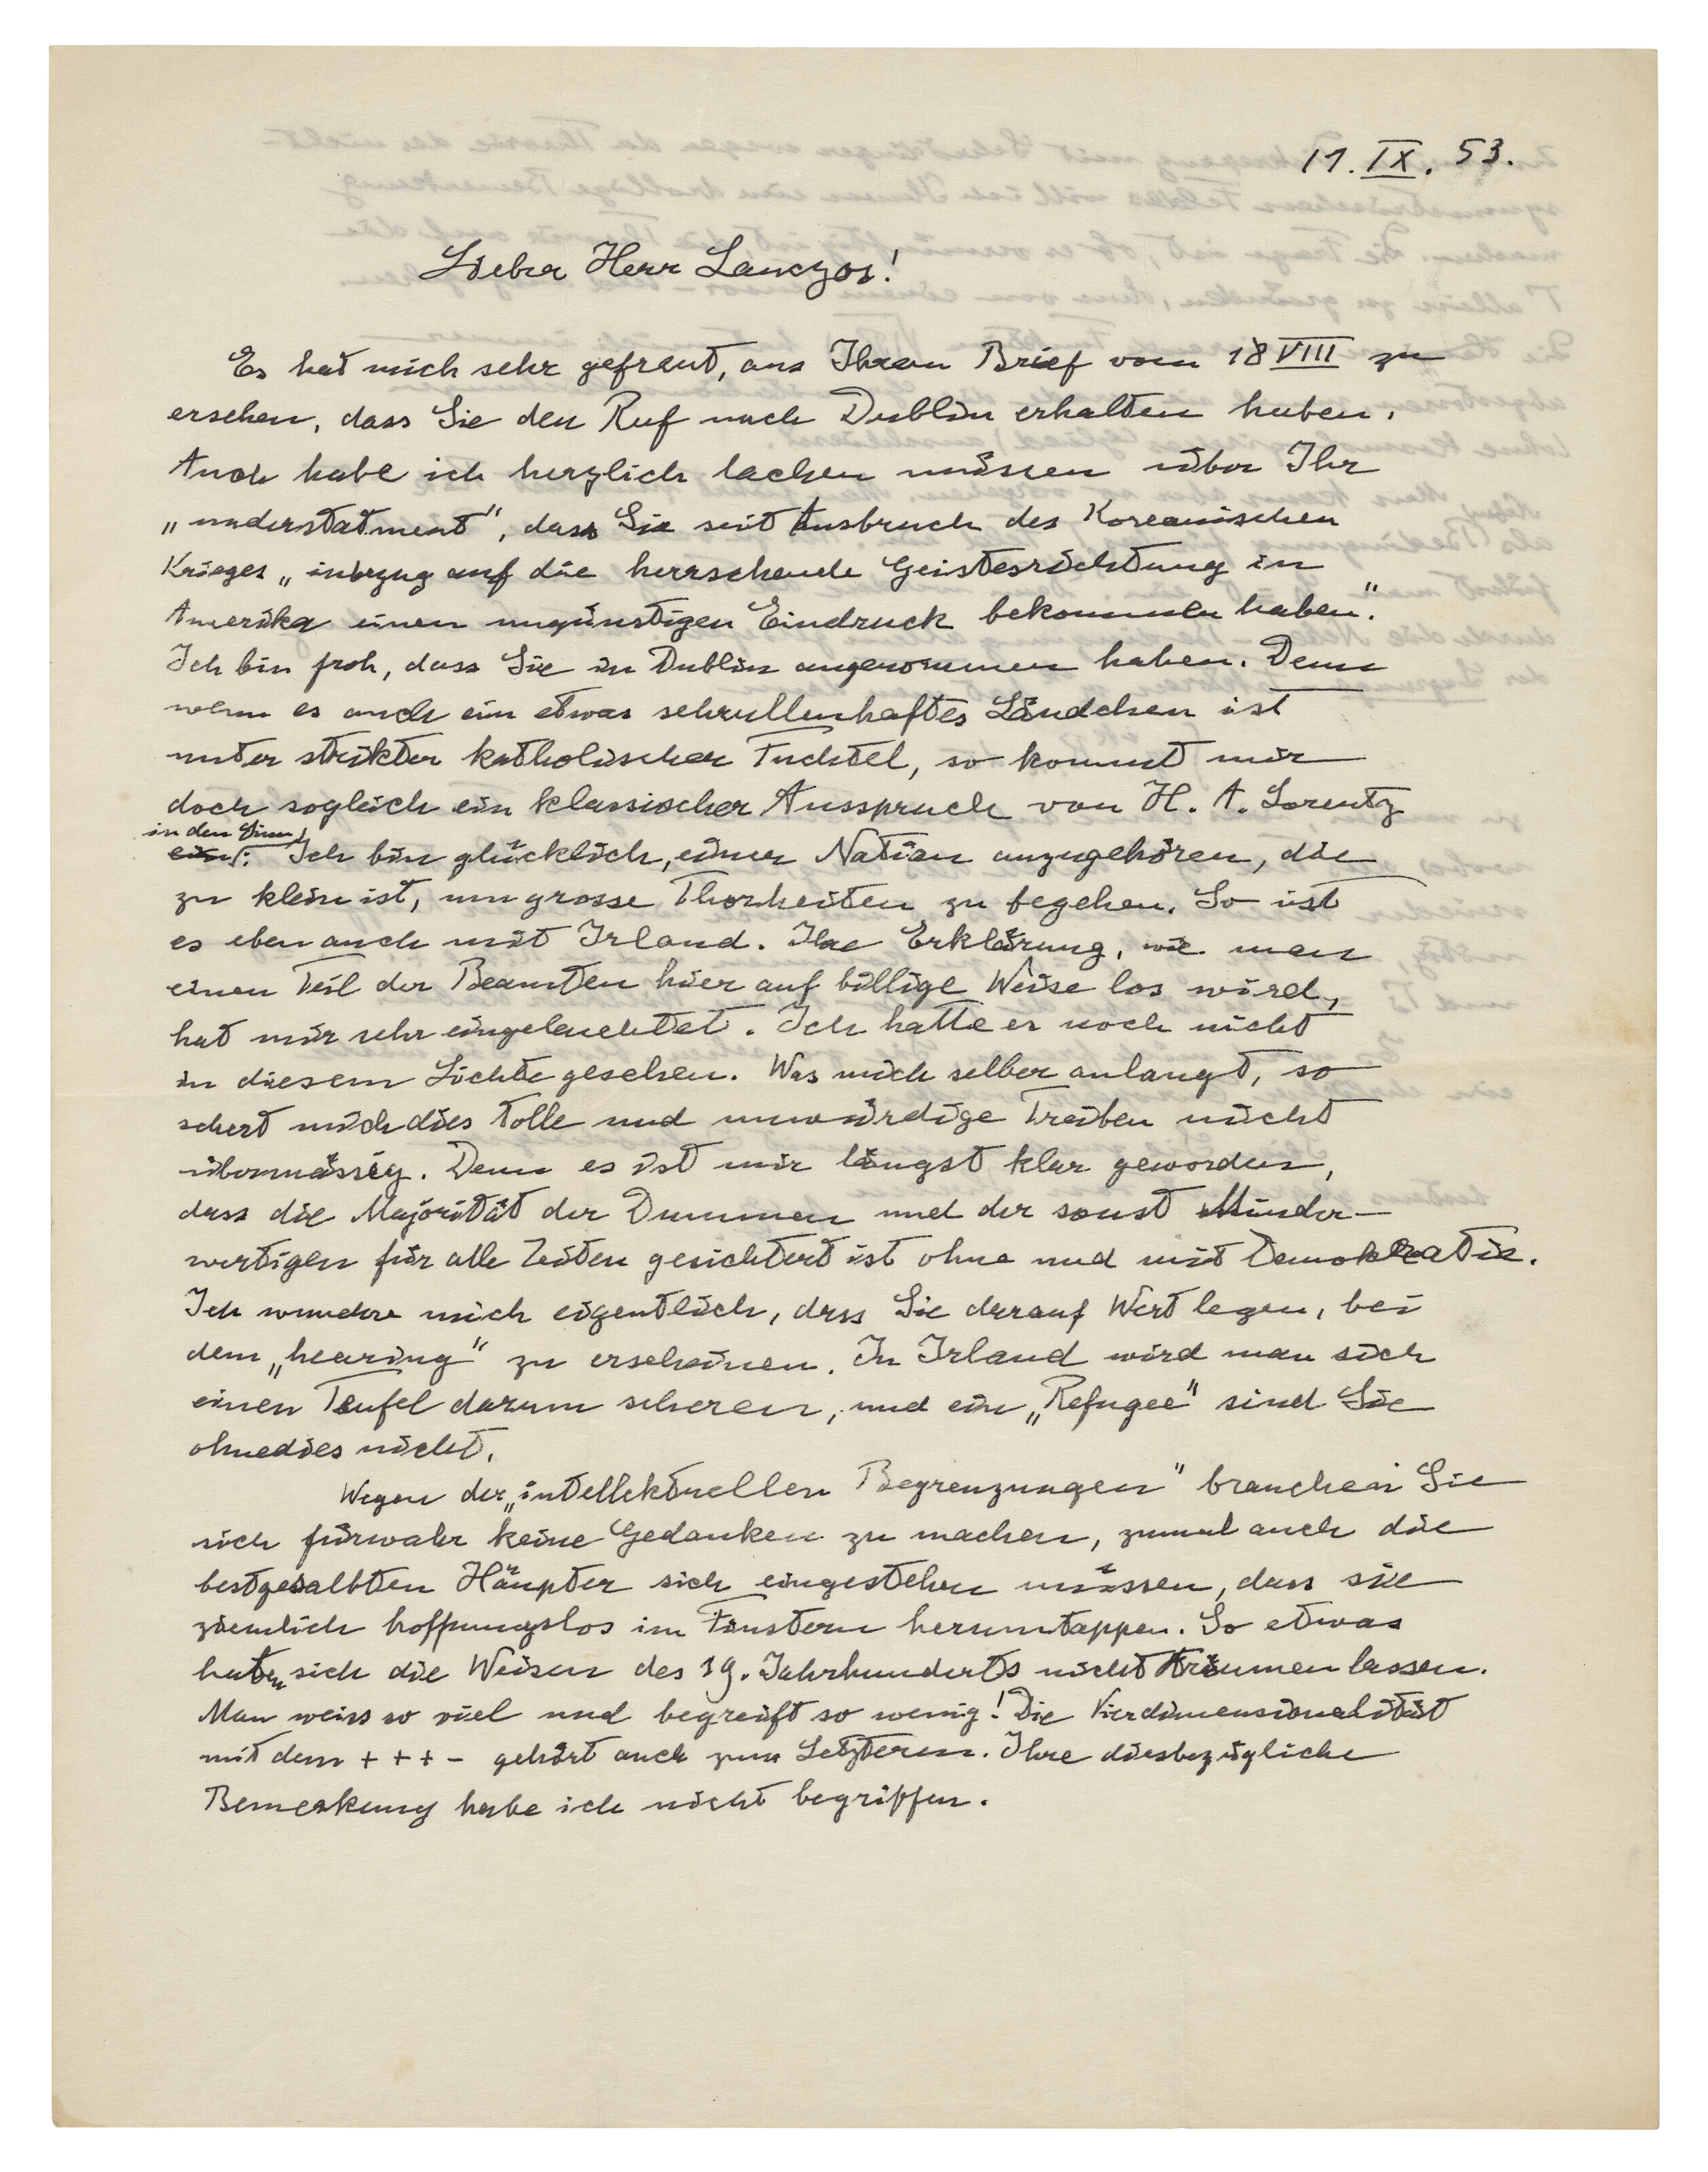 11. IX. 53.
Lieber Herr Lanczos!
Es hat mich sehr gefreut, aus Ihrem Brief vom 18 VIII zu
ersehen, dass Sie den Ruf nach Dublin erhalten haben.
Auch habe ich herzlich lachen müssen über Ihr
„understatment", dass Sie seit Ausbruch des Koreanischen
Krieges „inbezug auf die herrschende Geistesrichtung in
Amerika einen ungünstigen Eindruck bekommen haben".
Ich bin froh, dass Sie in Dublin angenommen haben. Denn
wenn es auch ein etwas schrullenhaftes Ländchen ist
unter strikter katholischer Fuchtel, so kommt mir
doch sogleich ein klassischer Ausspruch von H. A. Lorentz
in den Sinn: Ich bin glücklich, einer Nation anzugehören, die
zu klein ist, um grosse Thorheiten zu begehen. So ist
es eben auch mit Irland. Ihre Erklärung, wie man
einen Teil der Beamten hier auf billige Weise los wird,
hat mir sehr eingeleuchtet. Ich hatte es noch nicht
in diesem Lichte gesehen. Was mich selber anlangt, so
schert mich dies tolle und unwürdige Treiben nicht
übermässig. Denn es ist mir längst klar geworden,
dass die Majorität der Dummen und der sonst Minder-
wertigen für alle Zeiten gesichtert ist ohne und mit Demokratie.
Ich wundere mich eigentlich, dass Sie darauf Wert legen, bei
dem „hearing" zu erscheinen. In Irland wird man sich
einen Teufel darum scheren, und ein „Refugee" sind Sie
ohnedies nicht.
Wegen der „intellektuellen Begrenzungen" brauchen Sie
sich fürwahr keine Gedanken zu machen, zumal auch die
bestgesalbten Häupter sich eingestehen müssen, dass sie
ziemlich hoffnungslos im Finstern herumtappen. So etwas
haben sich die Weisen des 19. Jahrhunderts nicht träumen lassen.
Man weiss so viel und begreift so wenig! Die Vierdimensionalität
mit dem + + + - gehört auch zum Letzteren. Ihre diesbezügliche
Bemerkung habe ich nicht begriffen.